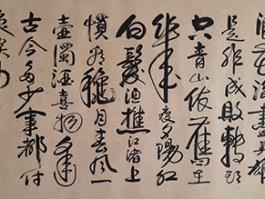 是非成敗轉頭
空青山依舊在
幾度夕陽紅
白髮漁樵江渚上
慣看秋月春風一
壺濁酒喜相逢
古今多少事都付